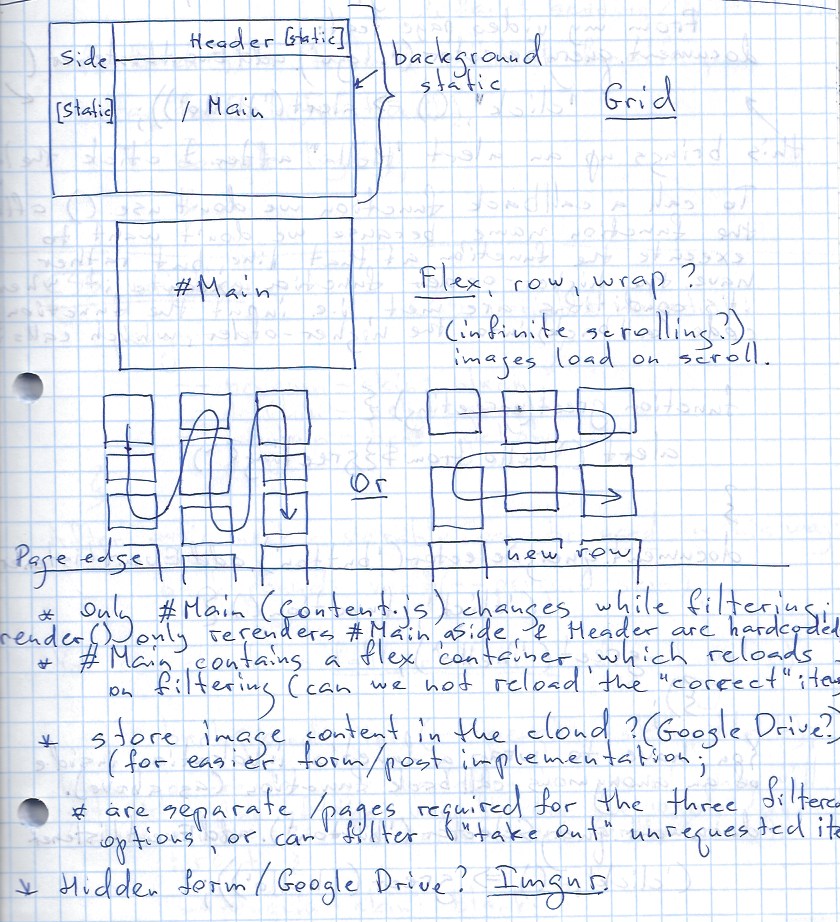 Header [static]
Side
[Static]
/ Main
background
static
Grid
#Main
Flex, row, wrap?
(infinite scrolling?)
images load on scroll.
Or
Page edge
new row
* Only #Main (content.js) changes while filtering.
render() only rerenders #Main aside, & Header are hardcoded
* #Main contains a flex container, which reloads
on filtering (can we not reload the "correct" item
* store image content in the cloud? (Google Drive?)
(for easier form/post implementation;
* are separate /pages required for the three filtered
options, or can filter "take out" unrequested ite
* Hidden form/Google Drive? Imgur.